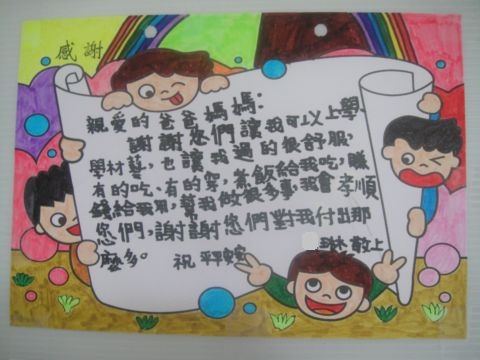 感謝
親愛的爸爸媽媽：
謝謝您們讓我可以上學
學材藝，也讓我過的很舒服，
有的吃、有的穿，煮飯給我吃，賺
錢給我用，幫我做很多事，我會孝順
您們，謝謝您們對我付出那
麼多。 祝 平安
琳 敬上